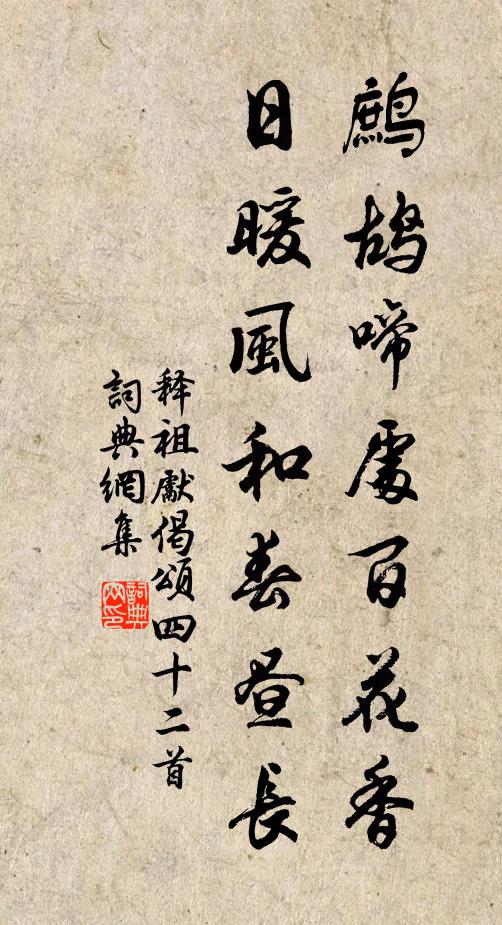 鷓鴣啼處百花香
日暖風和春晝長
释祖獻偈頌四十二首
詞典網集
詞典
网印